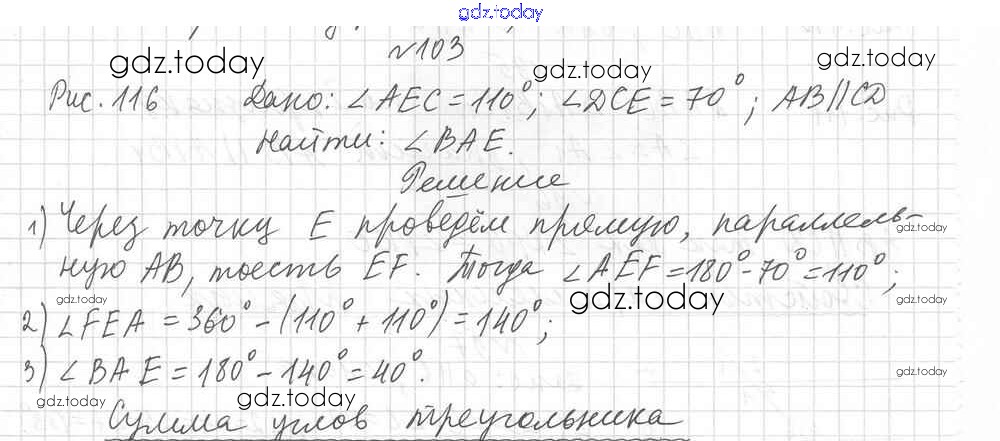 gdz.today
№103
gdz.today gdz.today gdz.today
Рис. 116 Дано: ∠AEC = 110°; ∠DCE = 70°; AB // CD
Найти: ∠BAE.
Решение
1) Через точку E проведём прямую, параллель-
gdz.today
ную AB, тоесть EF. Тогда ∠AEF = 180° - 70° = 110°;
gdz.today gdz.today gdz.today
2) ∠FEA = 360° - (110° + 110°) = 140°;
3) ∠BAE = 180° - 140° = 40°.
gdz.today gdz.today gdz.today
Сумма углов треугольника